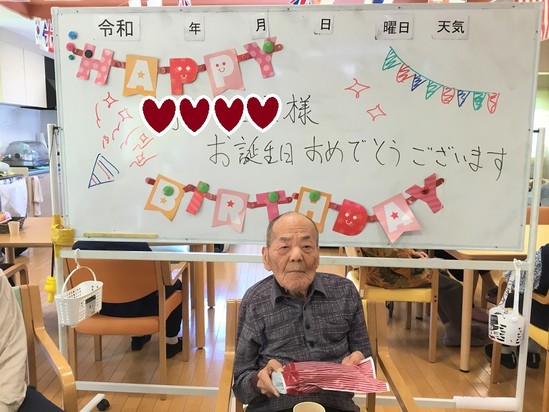 令和 年 月 日 曜日 天気
HAPPY
様
お誕生日おめでとうございます
BiRTHDAY